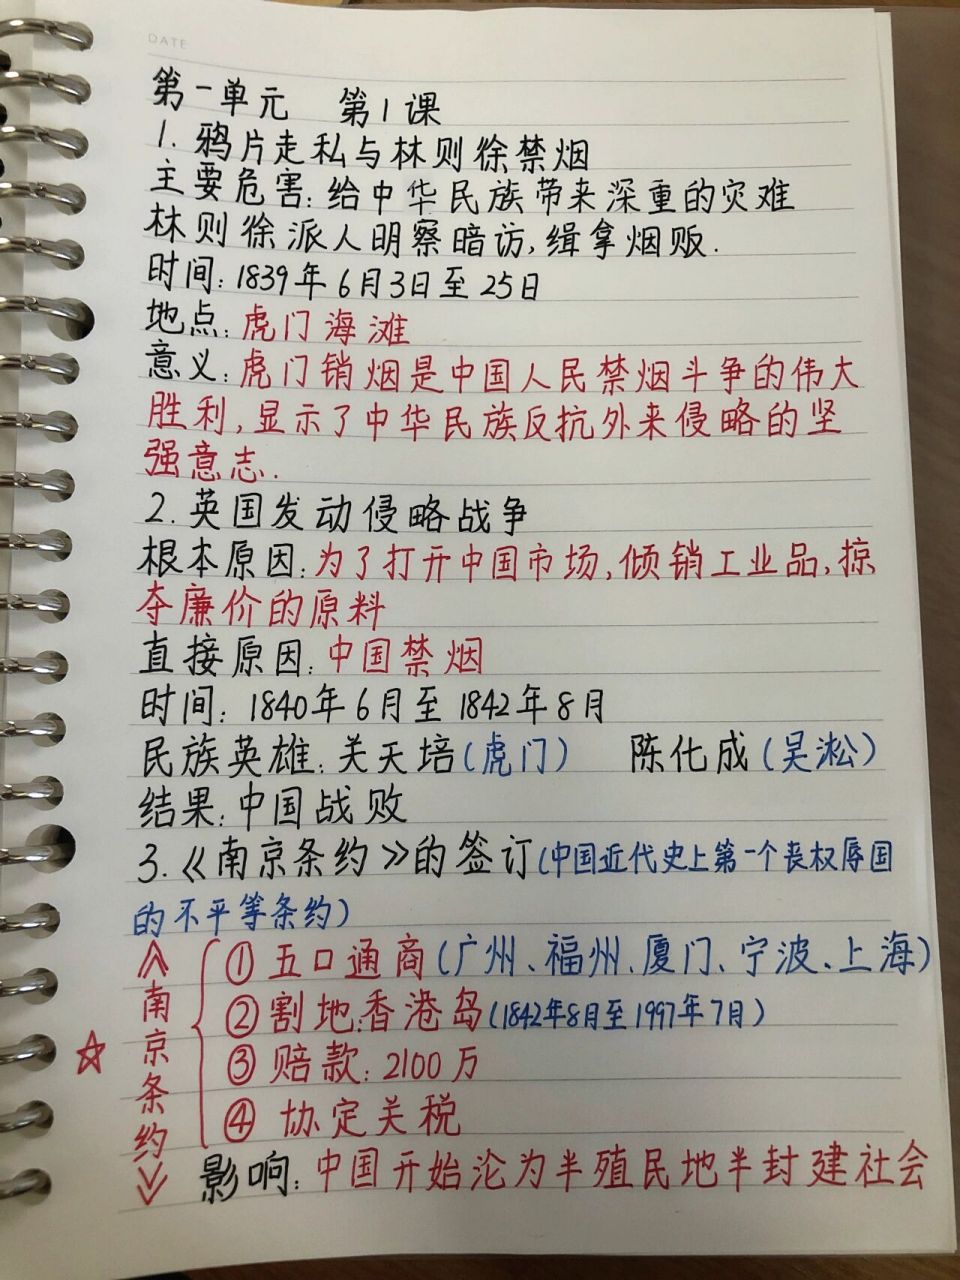 DATE
第一单元 第1课
1.鸦片走私与林则徐禁烟
主要危害:给中华民族带来深重的灾难
林则徐派人明察暗访,缉拿烟贩.
时间:1839年6月3日至25日
地点:虎门海滩
意义:虎门销烟是中国人民禁烟斗争的伟大
胜利,显示了中华民族反抗外来侵略的坚
强意志.
2.英国发动侵略战争
根本原因:为了打开中国市场,倾销工业品,掠
夺廉价的原料
直接原因:中国禁烟
时间:1840年6月至1842年8月
民族英雄:关天培(虎门) 陈化成(吴淞)
结果:中国战败
3.《南京条约》的签订(中国近代史上第一个丧权辱国
的不平等条约)
☆《南京条约》
①五口通商(广州、福州、厦门、宁波、上海)
②割地:香港岛(1842年8月至1997年7月)
③赔款:2100万
④协定关税
影响:中国开始沦为半殖民地半封建社会